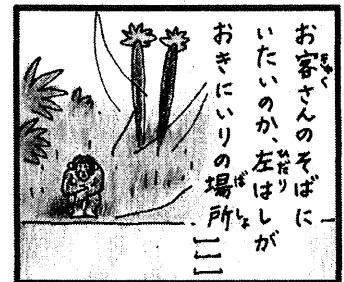 お客さんのそばに
いたいのか、左はしが
おきにいりの場所